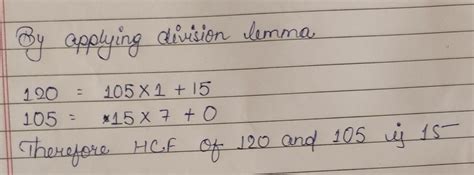 By applying division lemma
120 = 105 × 1 + 15
105 = 15 × 7 + 0
Therefore H.C.F of 120 and 105 is 15